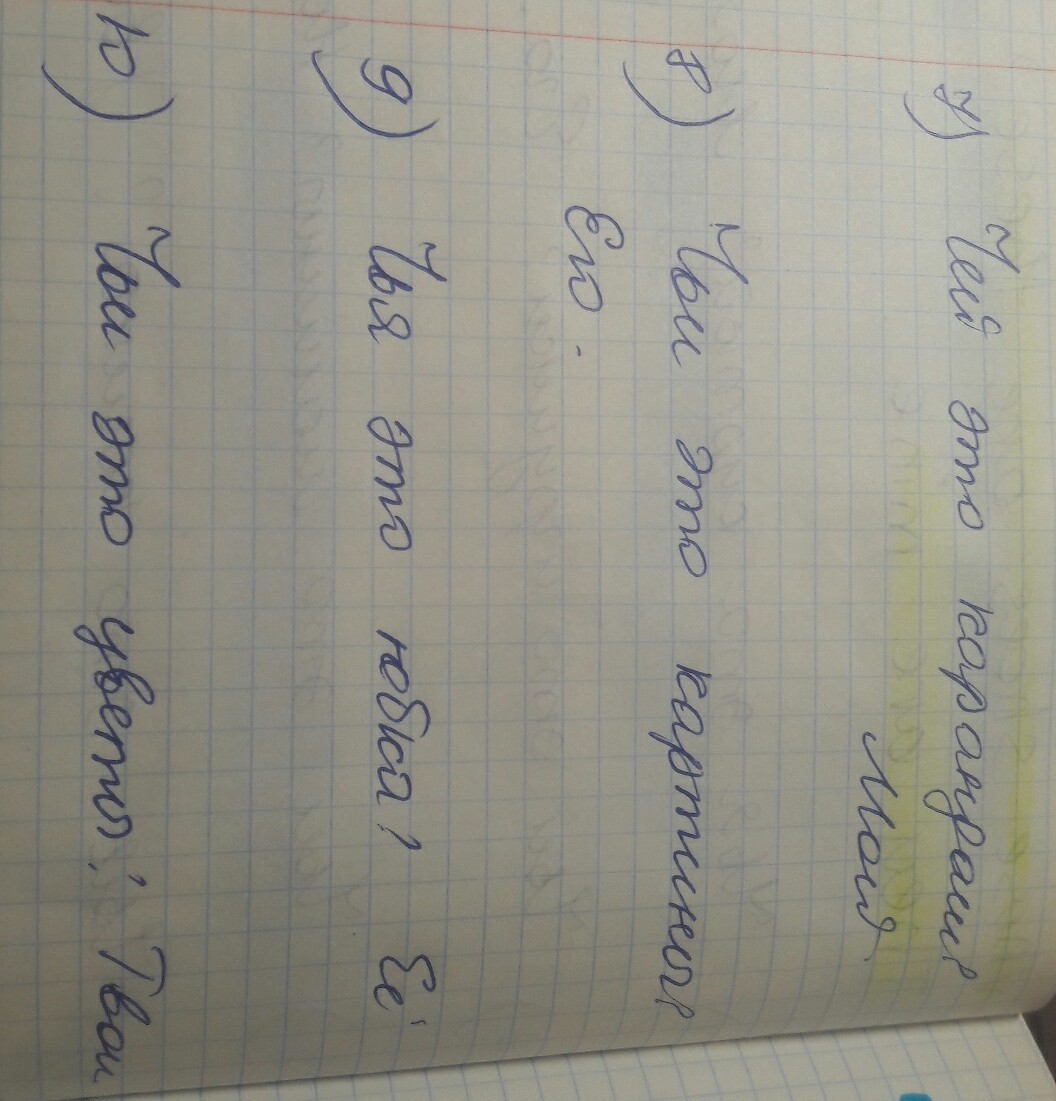 7) Чей это карандаш?
Мой
8) Чьи это картины?
Его.
9) Чья это юбка? Её
10) Чьи это цветы? Твои